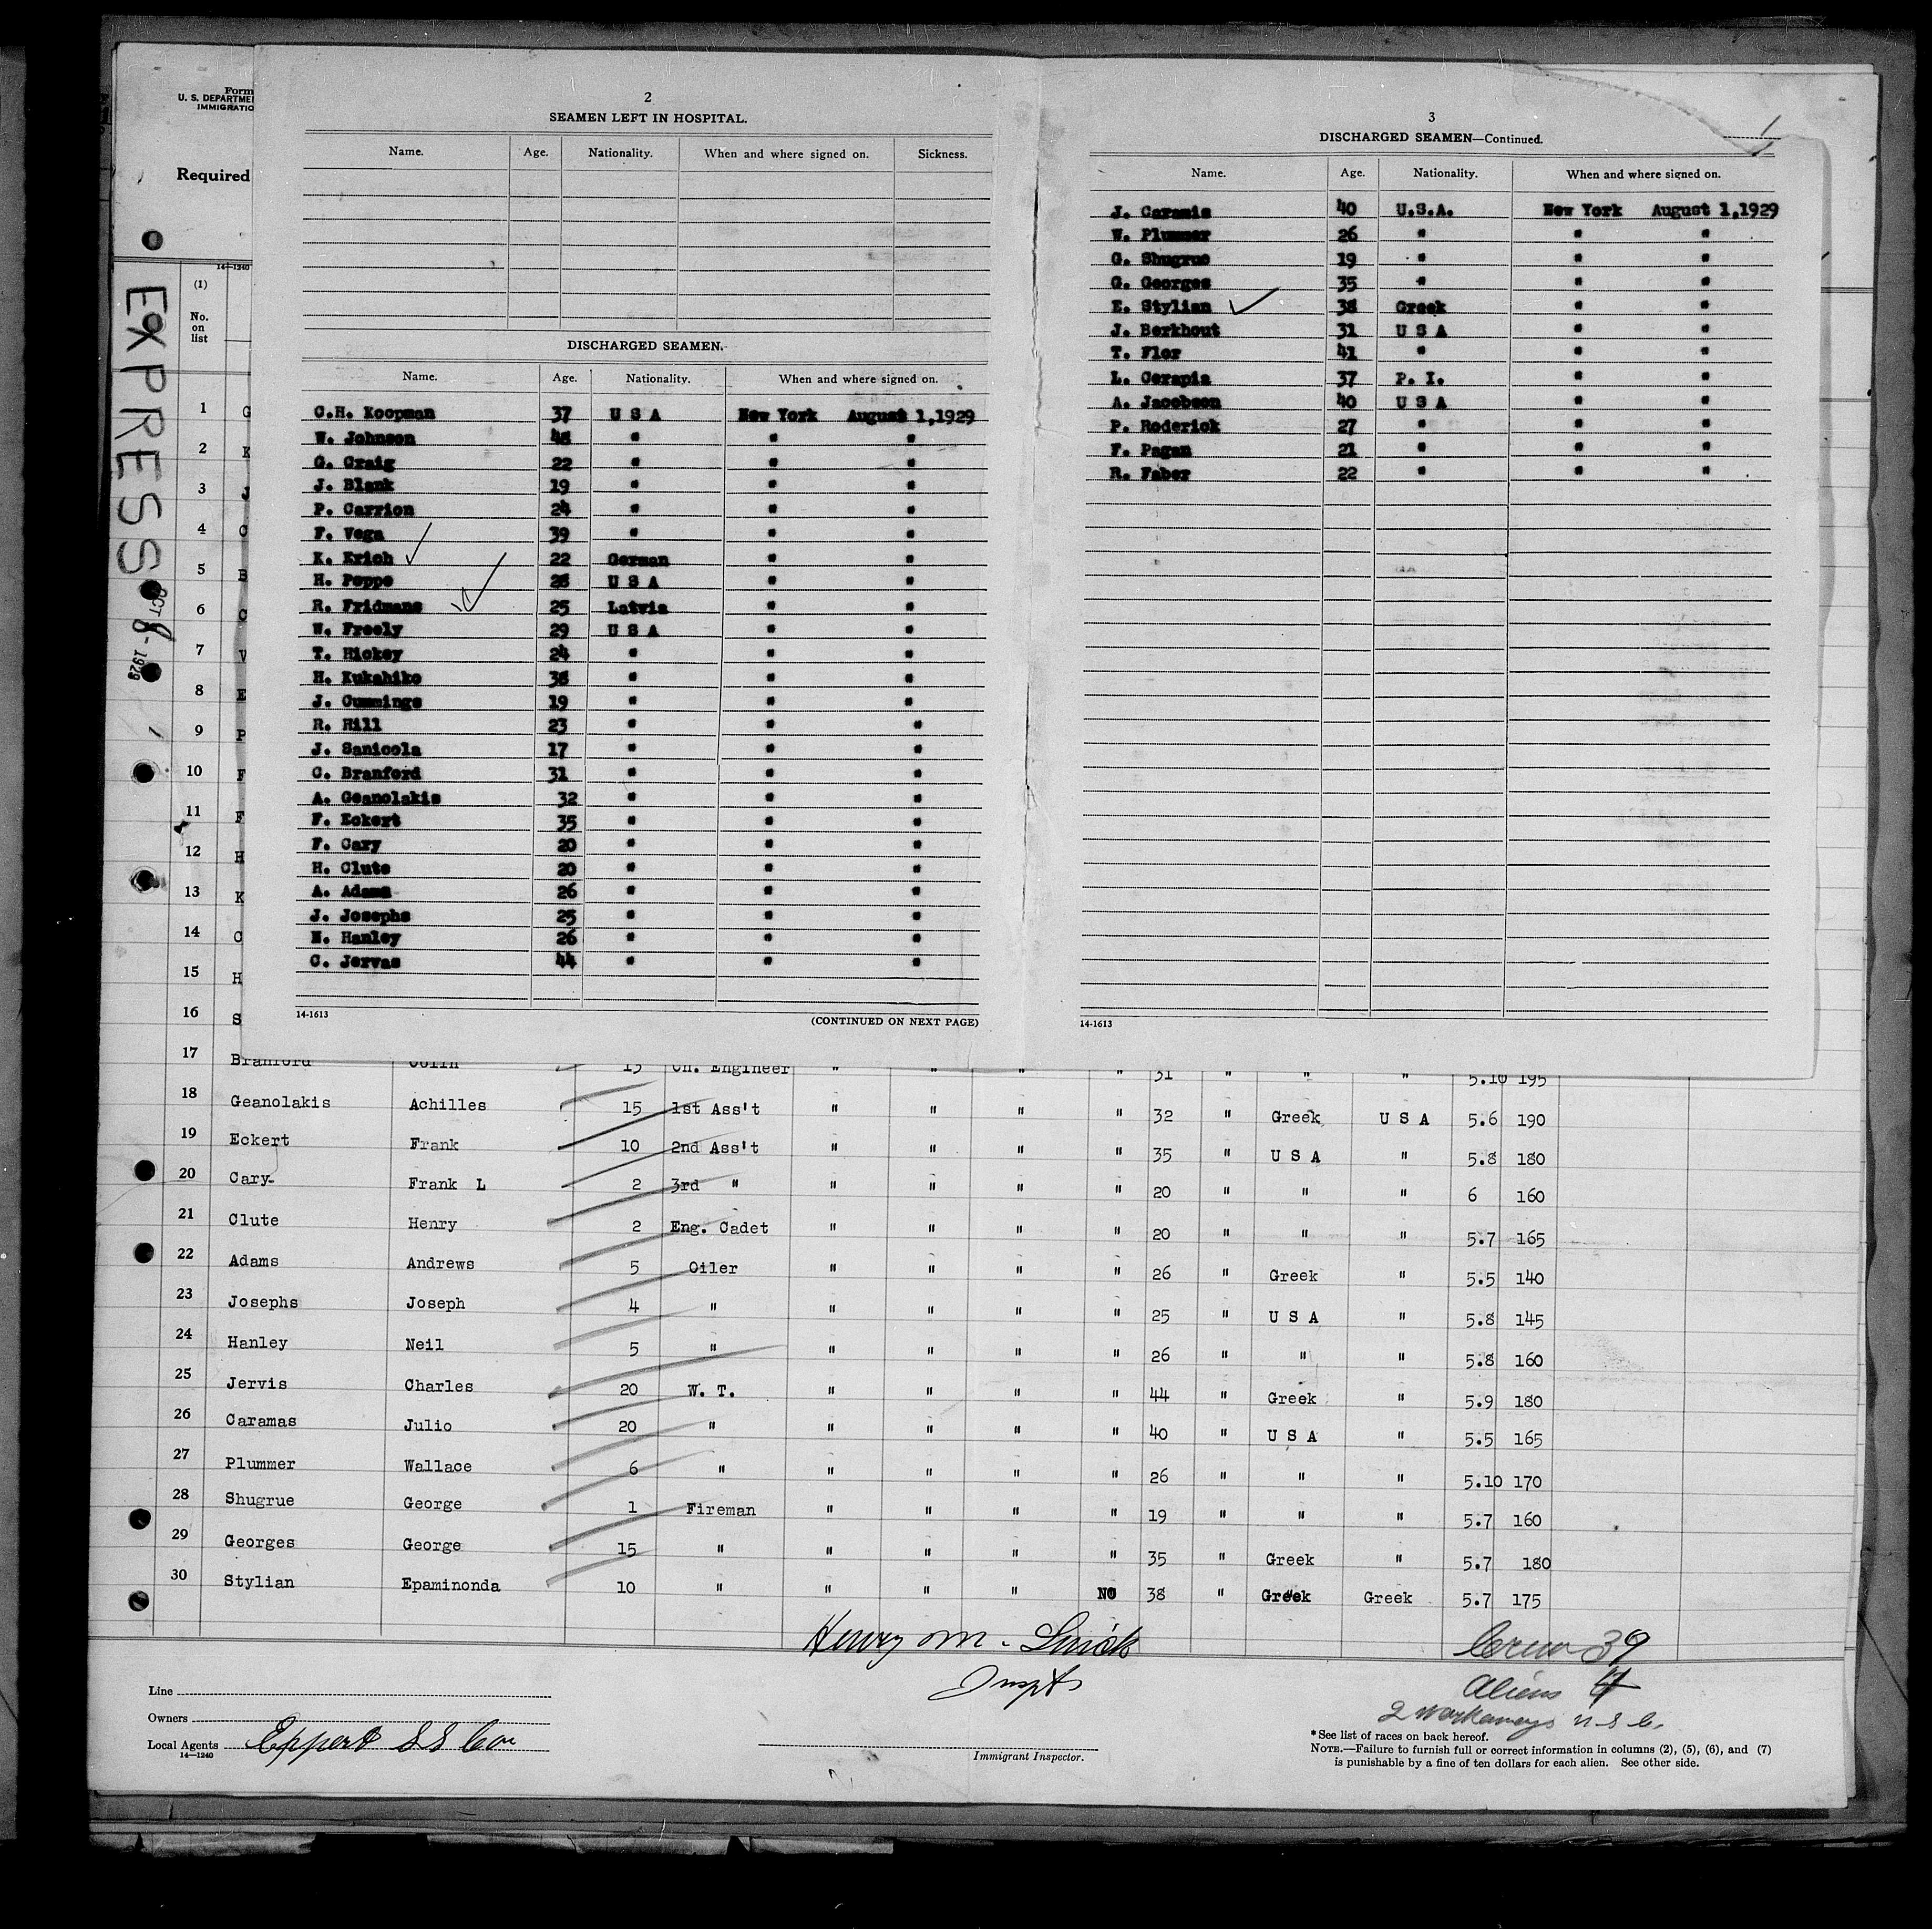 Form
U. S. DEPARTME
IMMIGRATIO
Required
14—1240
(1)
No.
on
list
EXPRESS
OCT 8 - 1929
1 G
2 K
3 J
4 C
5 B
6 C
7 V
8 E
9 P
10 F
11 F
12 H
13 K
14 C
15 H
16 S
2
SEAMEN LEFT IN HOSPITAL.
Name. Age. Nationality. When and where signed on. Sickness.
DISCHARGED SEAMEN.
Name. Age. Nationality. When and where signed on.
C.H. Koopman 37 U S A New York August 1,1929
W. Johnson 48 " " "
G. Craig 22 " " "
J. Blank 19 " " "
P. Carrion 24 " " "
F. Vega 39 " " "
K. Erich 22 German " "
H. Poppe 28 U S A " "
R. Fridmans 25 Latvia " "
W. Freely 29 U S A " "
T. Hickey 24 " " "
H. Kukahiko 38 " " "
J. Cummings 19 " " "
R. Hill 23 " " "
J. Sanicola 17 " " "
C. Branford 31 " " "
A. Geanolakis 32 " " "
F. Eckert 35 " " "
F. Cary 20 " " "
H. Clute 20 " " "
A. Adams 26 " " "
J. Josephs 25 " " "
N. Hanley 26 " " "
C. Jervas 44 " " "
14-1613
(CONTINUED ON NEXT PAGE)
3
DISCHARGED SEAMEN—Continued.
Name. Age. Nationality. When and where signed on.
J. Caramis 40 U.S.A. New York August 1,1929
W. Plummer 26 " " "
G. Shugrue 19 " " "
G. Georges 35 " " "
E. Stylian 38 Greek " "
J. Berkhout 31 U S A " "
T. Flor 41 " " "
L. Cerapia 37 P. I. " "
A. Jacobson 40 U S A " "
P. Roderick 27 " " "
F. Pagan 21 " " "
R. Faber 22 " " "
14-1613
17 Branford Colin 15 Ch. Engineer " " " " 31 " " " 5.10 195
18 Geanolakis Achilles 15 1st Ass't " " " " 32 " Greek U S A 5.6 190
19 Eckert Frank 10 2nd Ass't " " " " 35 " U S A " 5.8 180
20 Cary Frank L 2 3rd " " " " " 20 " " " 6 160
21 Clute Henry 2 Eng. Cadet " " " " 20 " " " 5.7 165
22 Adams Andrews 5 Oiler " " " " 26 " Greek " 5.5 140
23 Josephs Joseph 4 " " " " " 25 " U S A " 5.8 145
24 Hanley Neil 5 " " " " " 26 " " " 5.8 160
25 Jervis Charles 20 W. T. " " " " 44 " Greek " 5.9 180
26 Caramas Julio 20 " " " " " 40 " U S A " 5.5 165
27 Plummer Wallace 6 " " " " " 26 " " " 5.10 170
28 Shugrue George 1 Fireman " " " " 19 " " " 5.7 160
29 Georges George 15 " " " " " 35 " Greek " 5.7 180
30 Stylian Epaminonda 10 " " " " NO 38 " Greek Greek 5.7 175
Henry M.
Inspt
Crew 39
Aliens 4
2 Workaways U.S.C.
Line
Owners
Local Agents Eppert SS Co
14—1240
Immigrant Inspector.
*See list of races on back hereof.
NOTE.—Failure to furnish full or correct information in columns (2), (5), (6), and (7)
is punishable by a fine of ten dollars for each alien. See other side.